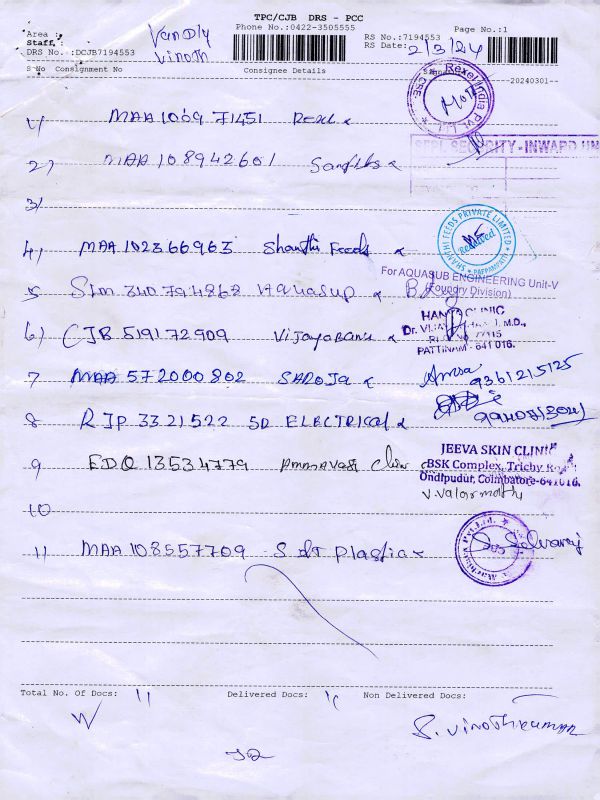 TPC/CJB DRS - PCC
Phone No.:0422-3505555
Page No.:1
Area :
Staff :
Vinoth
RS No.:7194553
RS Date: 2/3/24
DRS No.:DCJB7194553
S No Consignment No Consignee Details
--20240301--
1) MAA 1009 71451 Rexel
Rexel India Pvt. Ltd.
SECURITY - INWARD
2) MAA 108942601
3)
4) MAA 102366963 Shanthi Feeds
SHANTHI FEEDS PRIVATE LIMITED
Received
PAPPAMPATTI
For AQUASUB ENGINEERING Unit-V
(Foundry Division)
5 Slm 340794862 Aquasup
6) CJB 519172909
CLINIC
M.D.,
PATTINAM - 641 016.
7 MAA 572000802 SAROJA
9361215125
8 RJP 3321522 SD ELECTRICAL
9 EDQ 13534779 Ammavasi Clinic
JEEVA SKIN CLINIC
CBSK Complex, Trichy Road
Ondipudur, Coimbatore-641016.
V. Valarmathy
10
11 MAA 108557709 S dt Plastic
S. Selvaraj
Total No. Of Docs: 11 Delivered Docs: 10 Non Delivered Docs:
S. Vinothkumar